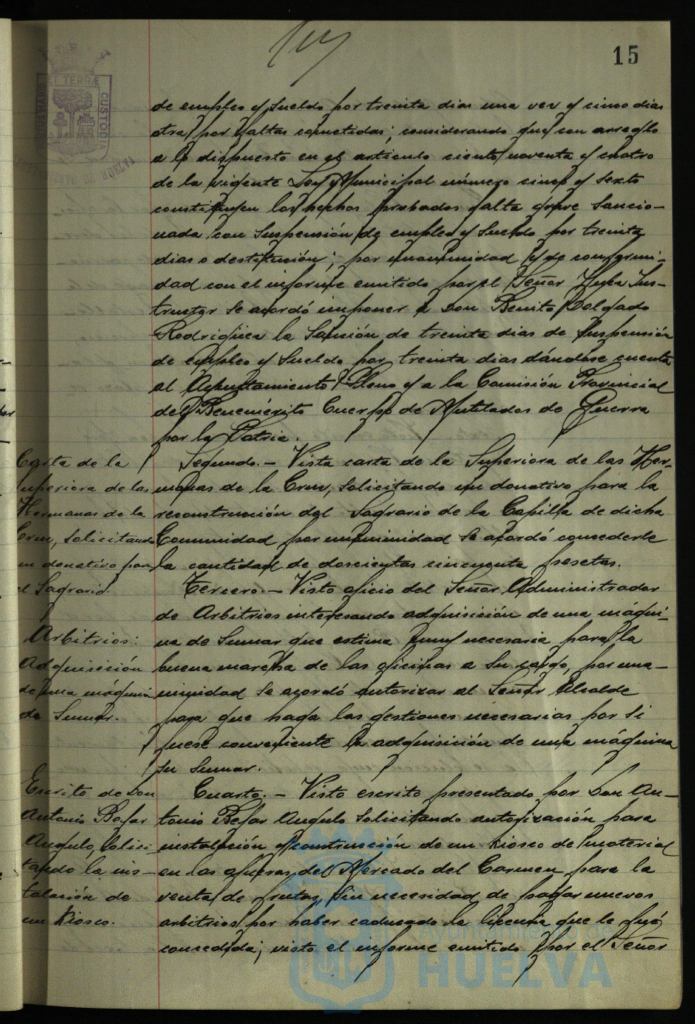 15
de empleo y sueldo por treinta dias una vez y cinco dias
otra por faltas cometidas; considerando que con arreglo
a lo dispuesto en el articulo ciento noventa y cuatro
de la vigente Ley Municipal número cinco y sexto
constituyen los hechos probados falta grave sancio-
nada con suspensión de empleo y sueldo por treinta
dias o destitución; por unanimidad y de conformi-
dad con el informe emitido por el Señor Juez Ins-
tructor se acordó imponer a Don Benito Delgado
Rodriguez la sanción de treinta dias de suspensión
de empleo y sueldo por treinta dias dándose cuenta
al Ayuntamiento Pleno y a la Comisión Provincial
del Benemérito Cuerpo de Mutilados de Guerra
por la Patria.
Carta de la
Superiora de las
Hermanas de la
Cruz, solicitando
un donativo para
el Sagrario.
Segundo.- Vista carta de la Superiora de las Her-
manas de la Cruz, solicitando un donativo para la
reconstrucción del Sagrario de la Capilla de dicha
Comunidad por unanimidad se acordó concederle
la cantidad de doscientas cincuenta pesetas.
Arbitrios:
Adquisición
de una máquina
de Sumar.
Tercero.- Visto oficio del Señor Administrador
de Arbitrios interesando adquisición de una máqui-
na de Sumar que estima muy necesaria para la
buena marcha de las oficinas a su cargo, por una-
nimidad se acordó autorizar al Señor Alcalde
para que haga las gestiones necesarias por si
fuese conveniente la adquisición de una máquina
su Sumar.
Escrito de Don
Antonio Befar
Angulo, solici-
tando la ins-
talación de
un Kiosco.
Cuarto.- Visto escrito presentado por Don An-
tonio Befar Angulo solicitando autorización para
instalación y construcción de un Kiosco de material
en las afueras del Mercado del Carmen para la
venta de frutas, sin necesidad de pagar nuevos
arbitrios por haber caducado la licencia que le fué
concedida; visto el informe emitido por el Señor
HUELVA